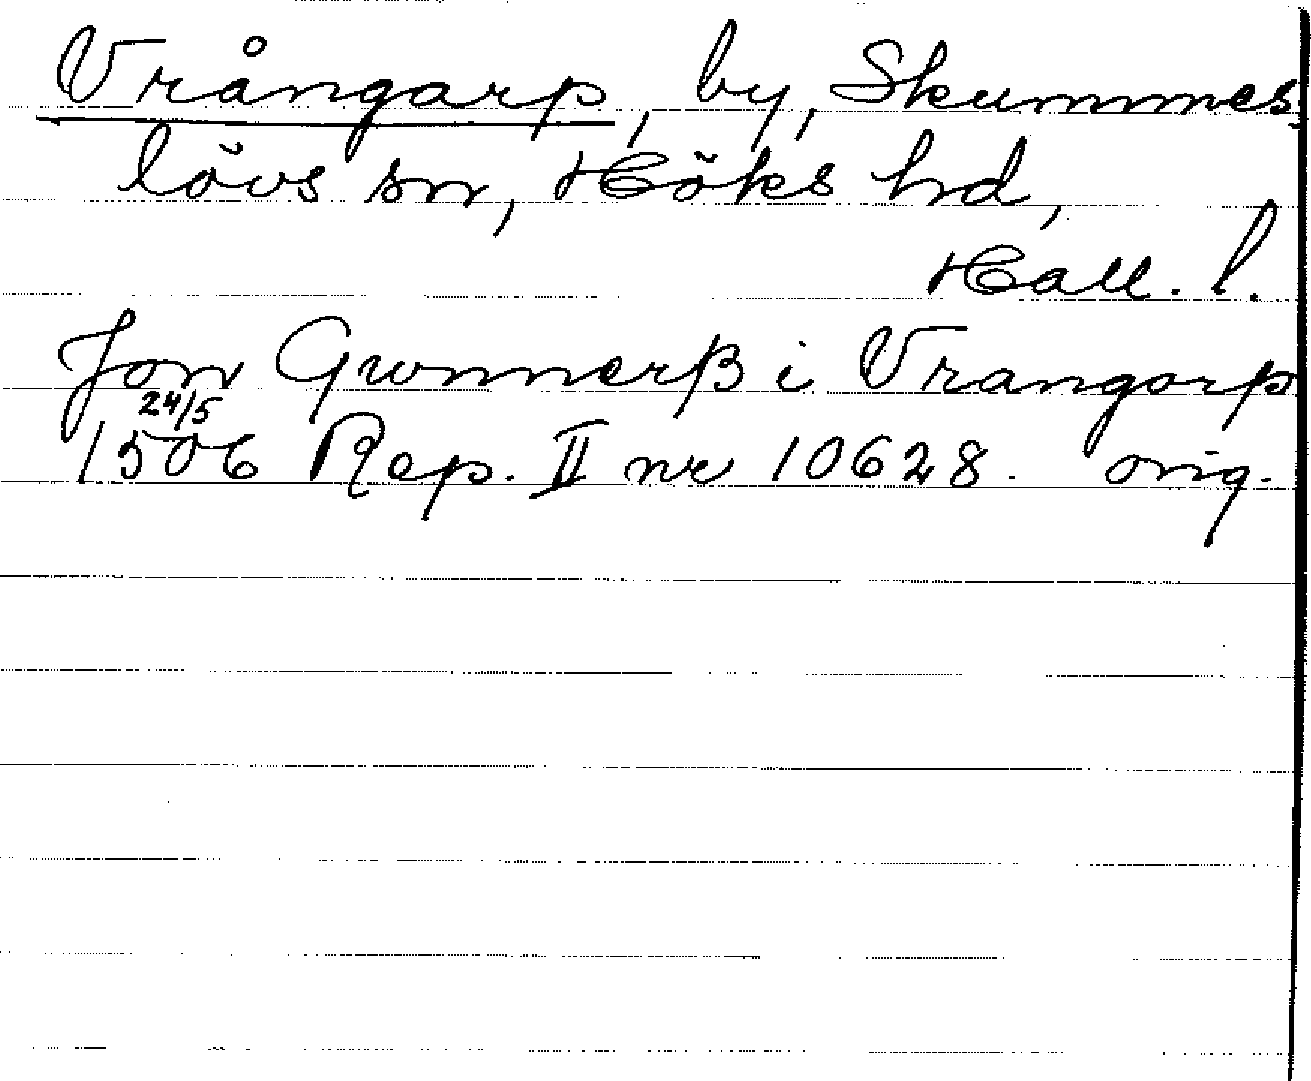 Vrångarp, by, Skummes-
lövs sn, Höks hd,
Hall. l.
Jon Gwnnerß i Vrangorp
24/5
1506 Rep. II nr 10628. orig.